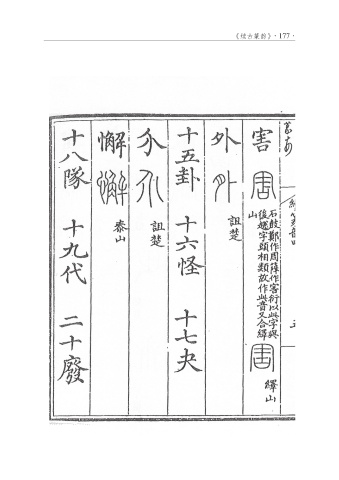 《续古篆韵》·177·
害 石鼓鄭作周薛作害衍以此字與
後字頭相類故作此音又合繹山
繹山
外 外 詛楚
十五卦 十六怪 十七夬
介 介 詛楚
懈 懈 泰山
十八隊 十九代 二十廢